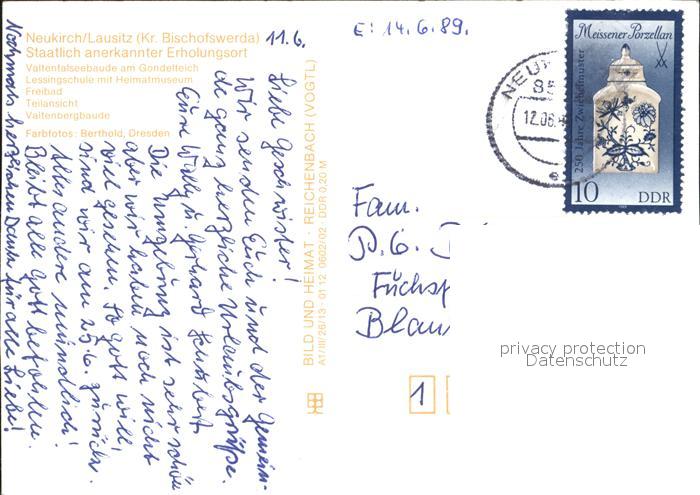 Neukirch/Lausitz (Kr. Bischofswerda)
Staatlich anerkannter Erholungsort
Valtentalseebaude am Gondelteich
Lessingschule mit Heimatmuseum
Freibad
Teilansicht
Valtenbergbaude
Farbfotos: Berthold, Dresden
11.6.
Liebe Geschwister!
Wir senden Euch und der Gemein-
de ganz herzliche Urlaubsgrüße.
Eure Wally u. Gerhard
Die Umgebung ist sehr schön
aber wir haben noch nicht
viel gesehen. So Gott will,
sind wir am 25.6. zurück.
Alles andere mündlich!
Bleibt alle Gott befohlen.
Nochmals herzlichen Dank für alle Liebe!
BILD UND HEIMAT · REICHENBACH (VOGTL)
A1/III/26/13 · 01 12 0602/02 DDR 0,20 M
E: 14.6.89.
Meissener Porzellan
250 Jahre Zwiebelmuster
10 DDR
12.06.
Fam.
Füchsp
Blau
1
privacy protection
Datenschutz